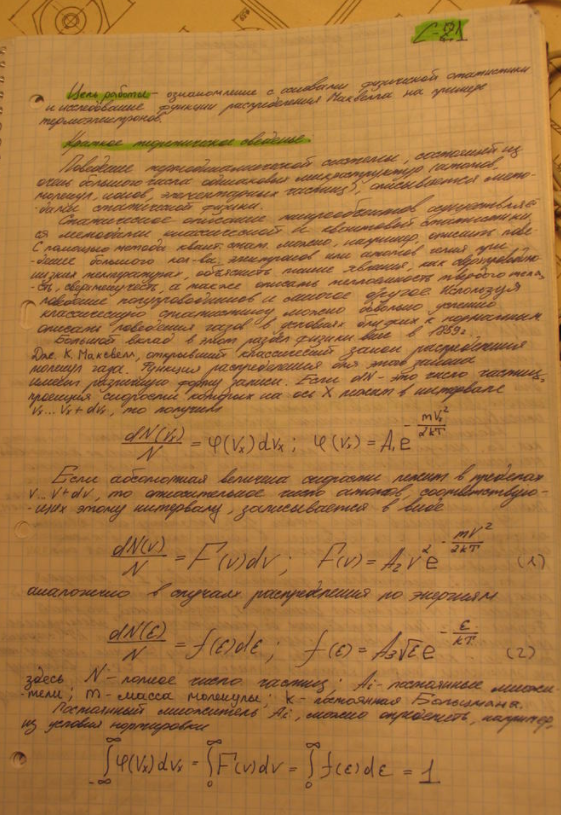 Цель работы - ознакомление с основами физической статистики
и исследование функции распределения Максвелла на примере
термоэлектронов.
Краткое теоретическое сведенье
Поведение термодинамической системы, состоящей из
очень большого числа одинаковых микроструктур (атомов,
молекул, ионов, элементарных частиц), описывается мето-
дами статической физики.
Статическое описание микрообъектов осуществляет-
ся методами классической и квантовой статистики.
С помощью метода квант. стат. можно, например, описать пове-
дение большого кол-ва электронов или атомов гелия при
низких температурах, объяснить такие явления, как сверхпроводимо-
сть, сверхтекучесть, а также описать теплоемкость твердого тела,
поведение полупроводников и многое другое. Используя
классическую статистику можно довольно успешно
описать поведения газов в условиях близких к нормальным
Большой вклад в этот раздел физики внес в 1859г.
Дж. К. Максвелл, открывший классический закон распределения
молекул газа. Функция распределения для этого закона
имеет различную форму записи. Если dN - это число частиц,
проекция скоростей которых на ось X лежит в интервале
Vx... Vx + dVx, то получим
dN(Vx)/N = φ(Vx)dVx ; φ(Vx) = A₁e^(-mVx²/2kT)
Если абсолютная величина скорости лежит в пределах
V... V+dV, то относительное число атомов, соответствую-
-щих этому интервалу, записывается в виде
dN(V)/N = F(V)dV ; F(V) = A₂V²e^(-mV²/2kT) (1)
аналогично в случаях распределения по энергиям
dN(ε)/N = f(ε)dε ; f(ε) = A₃√ε e^(-ε/kT) (2)
здесь N - полное число частиц; Ai - постоянные множи-
-тели; m - масса молекулы; k - постоянная Больцмана.
Постоянный множитель Ai, можно определить, например,
из условия нормировки
∫_{-∞}^{∞} φ(Vx)dVx = ∫_0^∞ F(V)dV = ∫_0^∞ f(ε)dε = 1